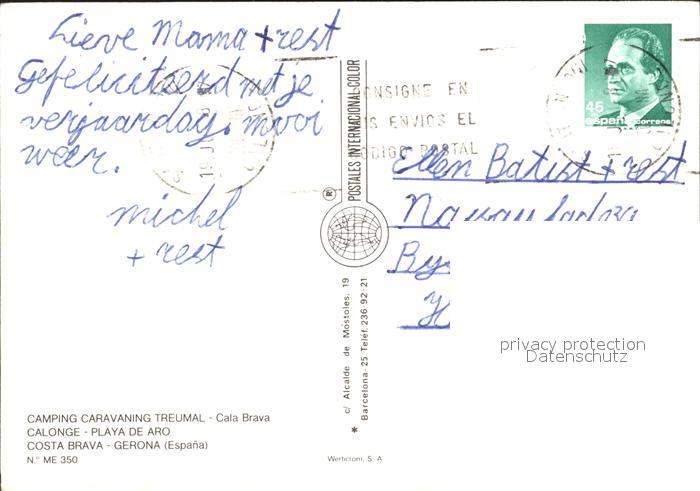 Lieve Mama + rest
Gefeliciteerd met je
verjaardag. mooi
weer.
michel
+ rest
CAMPING CARAVANING TREUMAL - Cala Brava
CALONGE - PLAYA DE ARO
COSTA BRAVA - GERONA (España)
N.° ME 350
POSTALES INTERNACIONAL-COLOR
®
c/ Alcalde de Móstoles, 19
Barcelona-25 Teléf. 236-92-21
Werticrom, S. A
ONSIGNE EN
IS ENVIOS EL
ODIGO POSTAL
45
españa correos
Ellen Batist + rest
privacy protection
Datenschutz